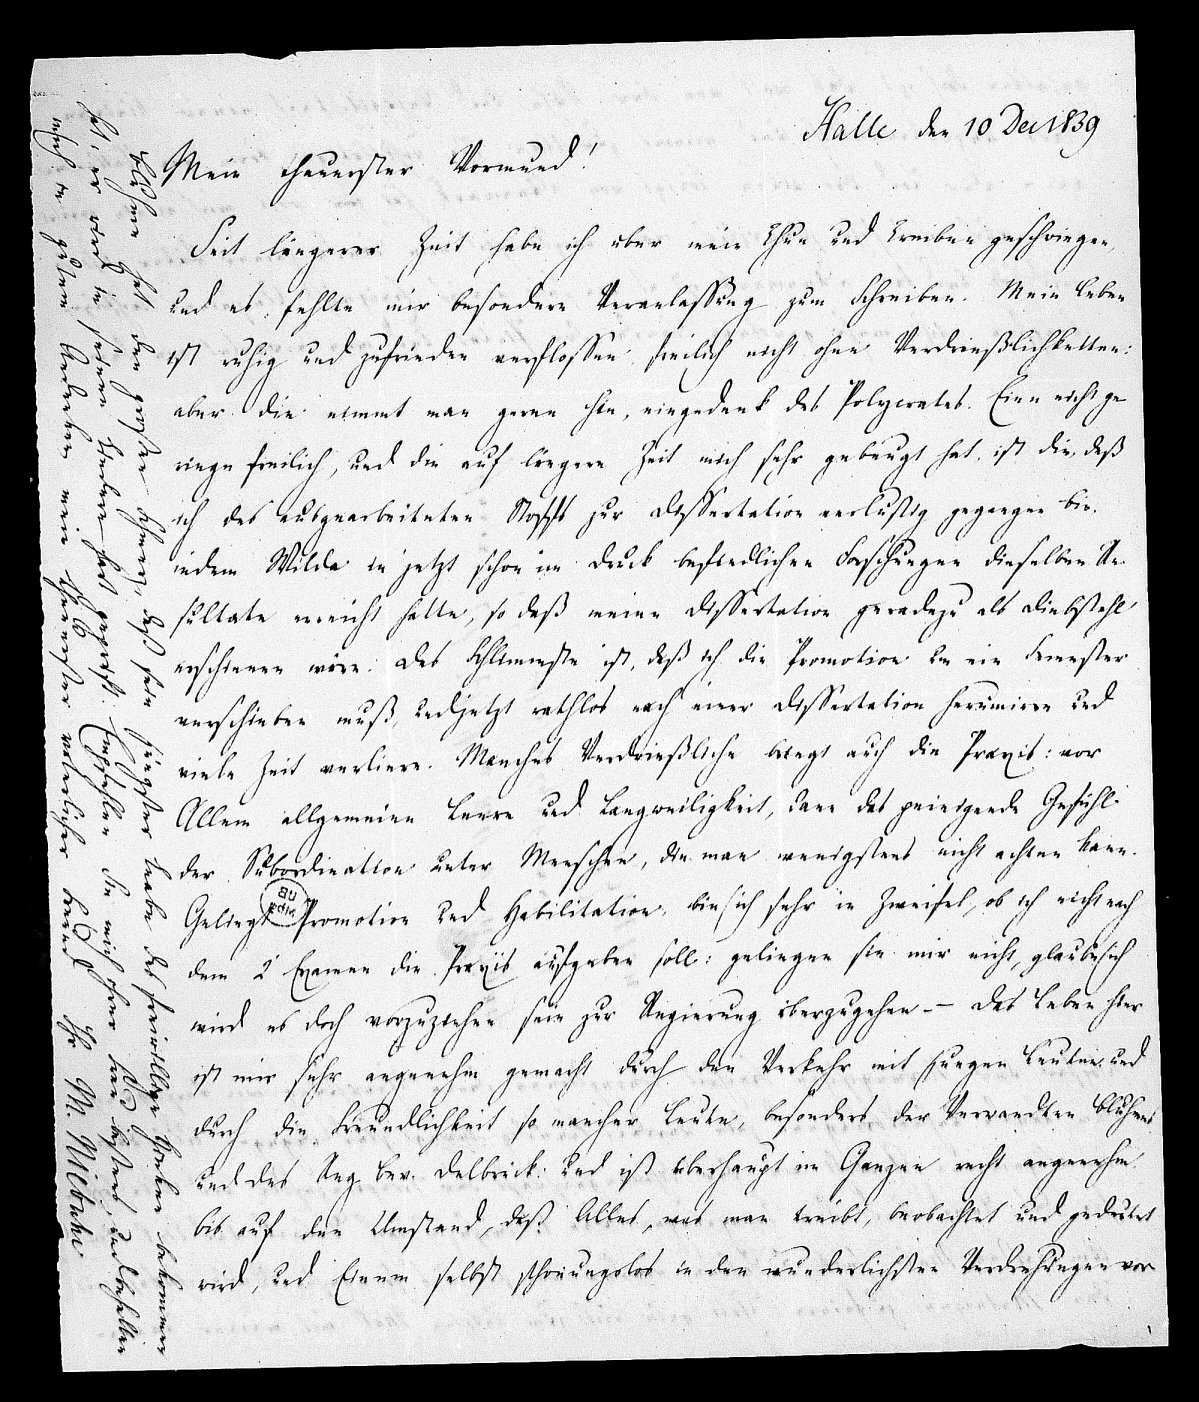 Halle den 10 Dec 1839
Mein theuerster Vormund!
Seit längerer Zeit habe ich über mein Thun und Treiben geschwiegen,
und es fehlte mir besondere Veranlassung zum Schreiben. Mein Leben
ist ruhig und zufrieden verflossen freilich nicht ohne Verdrießlichkeiten:
aber die nimmt man gerne hin, eingedenk des Polycrates. Eine nicht ge
ringe freilich, und die auf längere Zeit mich sehr gebeugt hat ist die, daß
ich des ausgearbeiteten Stoffs zur Dissertation verlustig gegangen bin.
indem Wilda in jetzt schon im Druck befindlichen Forschungen dieselben Re
sultate erreicht hatte, so daß meine Dissertation geradezu als Diebstahl
erschienen wäre. Das Schlimmste ist, daß ich die Promotion um ein Semester
verschieben muß, und jetzt rathlos nach einer Dissertation herumirre und
viele Zeit verliere. Manches Verdrießliche bringt auch die Praxis: vor
Allem allgemeine Leere und Langweiligkeit, dann das peinigende Gefühl
der Subordination unter Menschen, die man wenigstens nicht achten kann.
Gelingt Promotion und Habilitation, bin ich sehr in Zweifel, ob ich nicht nach
dem 2 Examen die Praxis aufgeben soll: gelingen sie mir nicht, glaube ich
wird es doch vorzuziehen sein zur Regierung überzugehen – Das Leben hier
ist mir sehr angenehm gemacht durch den Verkehr mit jungen Leuten und
durch die Freundlichkeit so mancher Leute, besonders der Verwandten Bluhmes
und des Reg. Bev. Delbrück: und ist überhaupt im Ganzen recht angenehm
bis auf den Umstand, daß Alles, was man treibt, beobachtet und gedeutet
wird, und Einem selbst schonungslos in den wunderlichsten Verdrehungen vor
Bluhme hat den großen Schmerz, daß sein jüngster Knabe das
hat, er wird in seinen
mich in gutem Andenken mein theuerster väterlicher Freund Ihr M. Niebuhr